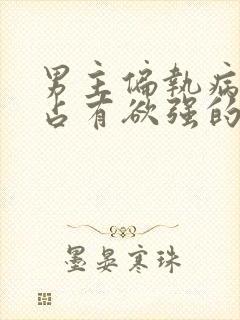 男主偏执病
占有欲强的
墨晏寒珠